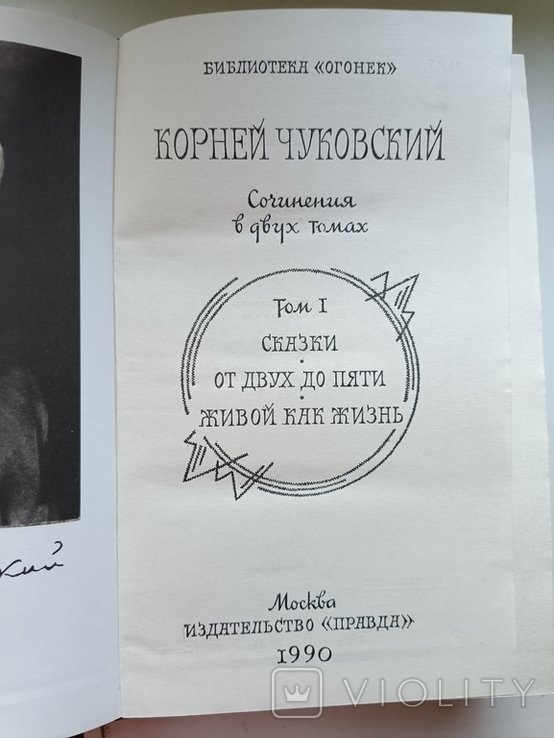 БИБЛИОТЕКА «ОГОНЕК»
КОРНЕЙ ЧУКОВСКИЙ
Сочинения
в двух томах
Том I
СКАЗКИ
·
ОТ ДВУХ ДО ПЯТИ
·
ЖИВОЙ КАК ЖИЗНЬ
Москва
ИЗДАТЕЛЬСТВО «ПРАВДА»
1990
VIOLITY